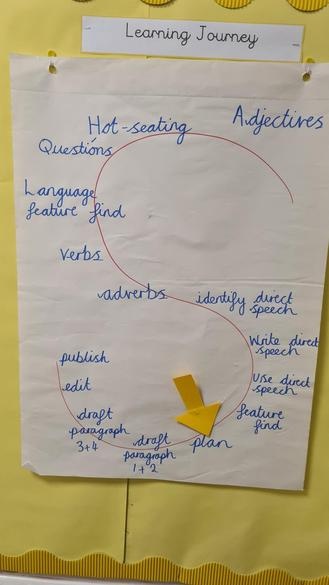 Learning Journey
Adjectives
Hot-seating
Questions
Language
feature find
verbs
adverbs
identify direct
speech
Write direct
speech
Use direct
speech
feature
find
plan
draft
paragraph
1 + 2
draft
paragraph
3+4
edit
publish